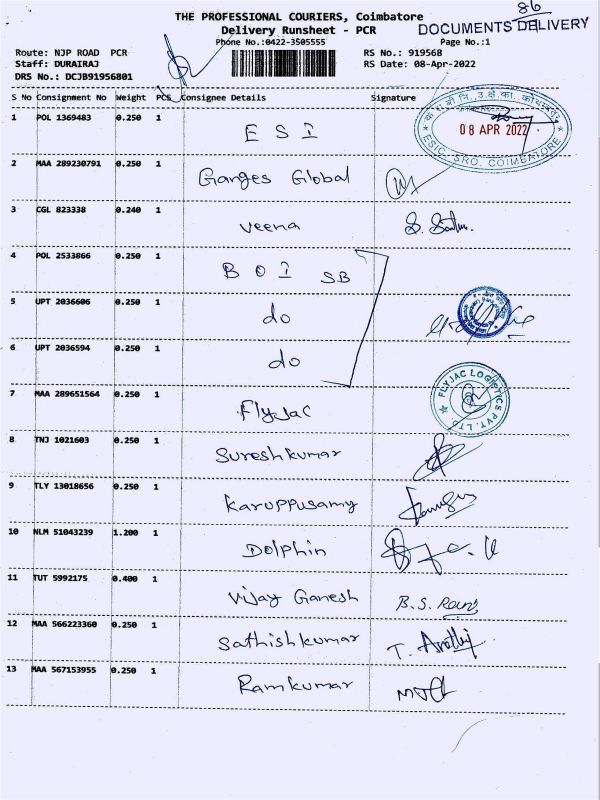 86
THE PROFESSIONAL COURIERS, Coimbatore
DOCUMENTS DELIVERY
Delivery Runsheet - PCR
Phone No.:0422-3505555
Page No.:1
Route: NJP ROAD PCR
RS No.: 919568
Staff: DURAIRAJ
RS Date: 08-Apr-2022
DRS No.: DCJB91956801
S No Consignment No Weight PCS Consignee Details Signature
1 POL 1369483 0.250 1 E S I
08 APR 2022
ESIC, SRO, COIMBATORE
2 MAA 289230791 0.250 1 Ganges Global
3 CGL 823338 0.240 1 veena
4 POL 2533866 0.250 1 B O I SB
5 UPT 2036606 0.250 1 do
6 UPT 2036594 0.250 1 do
7 MAA 289651564 0.250 1 Flyjac
FLYJAC LOGISTICS PVT. LTD.
8 TNJ 1021603 0.250 1 Sureshkumar
9 TLY 13018656 0.250 1 Karuppusamy
10 NLM 51043239 1.200 1 Dolphin
11 TUT 5992175 0.400 1 Vijay Ganesh B.S. Rani
12 MAA 566223360 0.250 1 Sathishkumar T. Arothi
13 MAA 567153955 0.250 1 Ramkumar